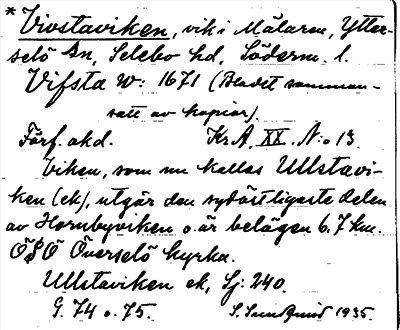 * Vivstaviken, vik i Mälaren, Ytter-
selö sn, Selebo hd, Söderm. l.
Vifsta W: 1671 (Bladet samman-
satt av kopior).
Förf. okd. Kr.A. XX. N:o 13.
Viken, som nu kallas Ullstavi-
ken (ek), utgör den sydöstligaste delen
av Hornbyviken o. är belägen 6.7 km.
ÖSÖ Överselö kyrka.
Ullstaviken ek, Sj: 240.
G. 74 o. 75. S. Sundquist 1935.